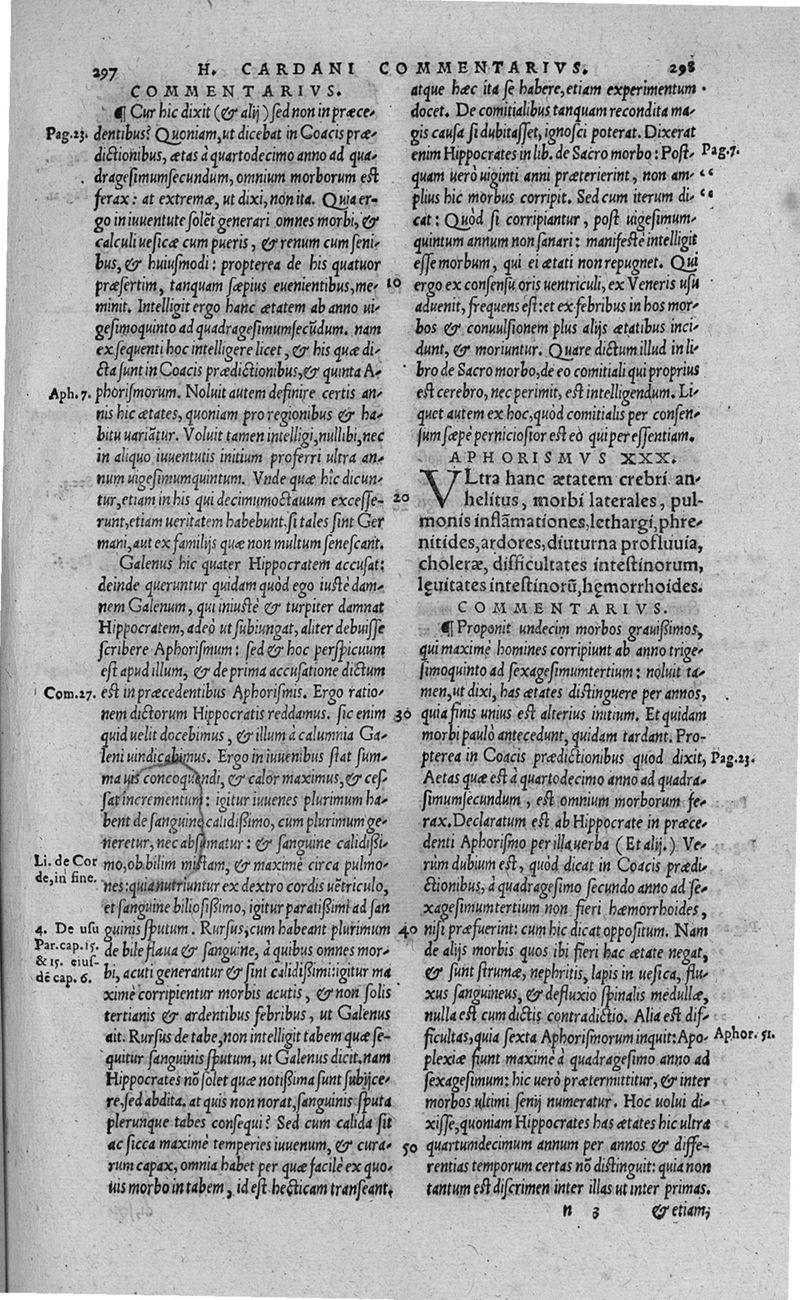 297 H. CARDANI COMMENTARIVS. 298
COMMENTARIVS.
¶ Cur hic dixit (& alij) sed non in præce-
Pag.23. dentibus? Quoniam, ut dicebat in Coacis præ-
dictionibus, ætas à quartodecimo anno ad qua-
dragesimumsecundum, omnium morborum est
ferax: at extremæ, ut dixi, non ita. Quia er-
go in iuuentute solẽt generari omnes morbi, &
calculi uesicæ cum pueris, & renum cum seni-
bus, & huiusmodi: propterea de his quatuor
præsertim, tanquam sæpius euenientibus, me-
minit. Intelligit ergo hanc ætatem ab anno ui-
gesimoquinto ad quadragesimumsecũdum. nam
ex sequenti hoc intelligere licet, & his quæ di-
cta sunt in Coacis prædictionibus, & quinta A-
Aph.7. phorismorum. Noluit autem definire certis an-
nis hic ætates, quoniam pro regionibus & ha-
bitu uariãtur. Voluit tamen intelligi, nullibi, nec
in aliquo iuuentutis initium proferri ultra an-
num uigesimumquintum. Vnde quæ hîc dicun-
tur, etiam in his qui decimumoctauum excesse-
runt, etiam ueritatem habebunt, si tales sint Ger
mani, aut ex familijs quæ non multum senescant.
Galenus hic quater Hippocratem accusat:
deinde queruntur quidam quòd ego iustè dam-
nem Galenum, qui iniustè & turpiter damnat
Hippocratem, adeò ut subiungat, aliter debuisse
scribere Aphorismum: sed & hoc perspicuum
est apud illum, & de prima accusatione dictum
Com.27. est in præcedentibus Aphorismis. Ergo ratio-
nem dictorum Hippocratis reddamus. sic enim
quid uelit docebimus, & illum à calumnia Ga-
leni uindicabimus. Ergo in iuuenibus stat sum-
ma uis concoquendi, & calor maximus, & ces-
sat incrementum: igitur iuuenes plurimum ha-
bent de sanguine calidißimo, cum plurimum ge-
neretur, nec absumatur: & sanguine calidißi-
Li. de Cor mo, ob bilim mistam, & maximè circa pulmo-
de, in fine. nes: quia nutriuntur ex dextro cordis uẽtriculo,
et sanguine biliosißimo, igitur paratißimi ad san
4. De usu guinis sputum. Rursus, cum habeant plurimum
Par. cap. 15. de bile flaua & sanguine, à quibus omnes mor-
& 15. eius- bi, acuti generantur & sint calidißimi: igitur ma
dẽ cap. 6. ximè corripientur morbis acutis, & non solis
tertianis & ardentibus febribus, ut Galenus
ait. Rursus de tabe, non intelligit tabem quæ se-
quitur sanguinis sputum, ut Galenus dicit. nam
Hippocrates nõ solet quæ notißima sunt subijce-
re, sed abdita. at quis non norat, sanguinis sputa
plerunque tabes consequi? Sed cum calida sit
ac sicca maximè temperies iuuenum, & cura-
rum capax, omnia habet per quæ facilè ex quo-
uis morbo in tabem, id est hecticam transeant,
atque hæc ita se habere, etiam experimentum
docet. De comitialibus tanquam recondita ma-
gis causa si dubitasset, ignosci poterat. Dixerat
enim Hippocrates in lib. de Sacro morbo: Post- Pag.7.
quam uerò uiginti anni præterierint, non am- “
plius hic morbus corripit. Sed cum iterum di- “
cat: Quòd si corripiantur, post uigesimum-
quintum annum non sanari: manifestè intelligit
esse morbum, qui ei ætati non repugnet. Qui
10 ergo ex consensu oris uentriculi, ex Veneris usu
aduenit, frequens est: et ex febribus in hos mor-
bos & conuulsionem plus alijs ætatibus inci-
dunt, & moriuntur. Quare dictum illud in li-
bro de Sacro morbo, de eo comitiali qui proprius
est cerebro, nec perimit, est intelligendum. Li-
quet autem ex hoc, quòd comitialis per consen-
sum sæpè perniciosior est eò qui per essentiam.
APHORISMVS XXX.
VLtra hanc ætatem crebri an-
20 helitus, morbi laterales, pul-
monis inflãmationes, lethargi, phre-
nitides, ardores, diuturna profluuia,
choleræ, difficultates intestinorum,
lęuitates intestinorũ, hęmorrhoides.
COMMENTARIVS.
¶ Proponit undecim morbos grauißimos,
qui maximè homines corripiunt ab anno trige-
simoquinto ad sexagesimumtertium: noluit ta-
men, ut dixi, has ætates distinguere per annos,
30 quia finis unius est alterius initium. Et quidam
morbi paulò antecedunt, quidam tardant. Pro-
pterea in Coacis prædictionibus quod dixit, Pag.23.
Aetas quæ est à quartodecimo anno ad quadra-
simumsecundum, est omnium morborum fe-
rax. Declaratum est ab Hippocrate in præce-
denti Aphorismo per illa uerba (Et alij.) Ve-
rùm dubium est, quòd dicat in Coacis prædi-
ctionibus, à quadragesimo secundo anno ad se-
xagesimumtertium non fieri hæmorrhoides,
40 nisi præfuerint: cum hic dicat oppositum. Nam
de alijs morbis quos ibi fieri hac ætate negat,
& sunt strumæ, nephritis, lapis in uesica, flu-
xus sanguineus, & defluxio spinalis medullæ,
nulla est cum dictis contradictio. Alia est dif-
ficultas, quia sexta Aphorismorum inquit: Apo- Aphor. 51.
plexiæ fiunt maximè à quadragesimo anno ad
sexagesimum: hic uerò prætermittitur, & inter
morbos ultimi senij numeratur. Hoc uolui di-
xisse, quoniam Hippocrates has ætates hic ultra
50 quartumdecimum annum per annos & diffe-
rentias temporum certas nõ distinguit: quia non
tantum est discrimen inter illas ut inter primas.
n 3 & etiam;